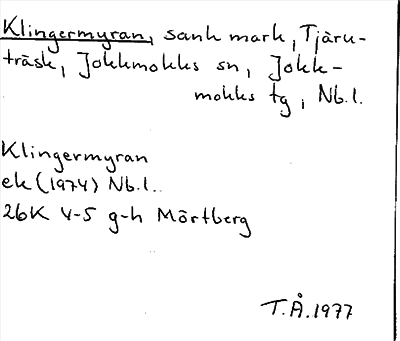 Klingermyran, sank mark, Tjäru-
träsk, Jokkmokks sn, Jokk-
mokks tg, Nb.l.
Klingermyran
ek (1974) Nb.l..
26K 4-5 g-h Mörtberg
T.Å.1977